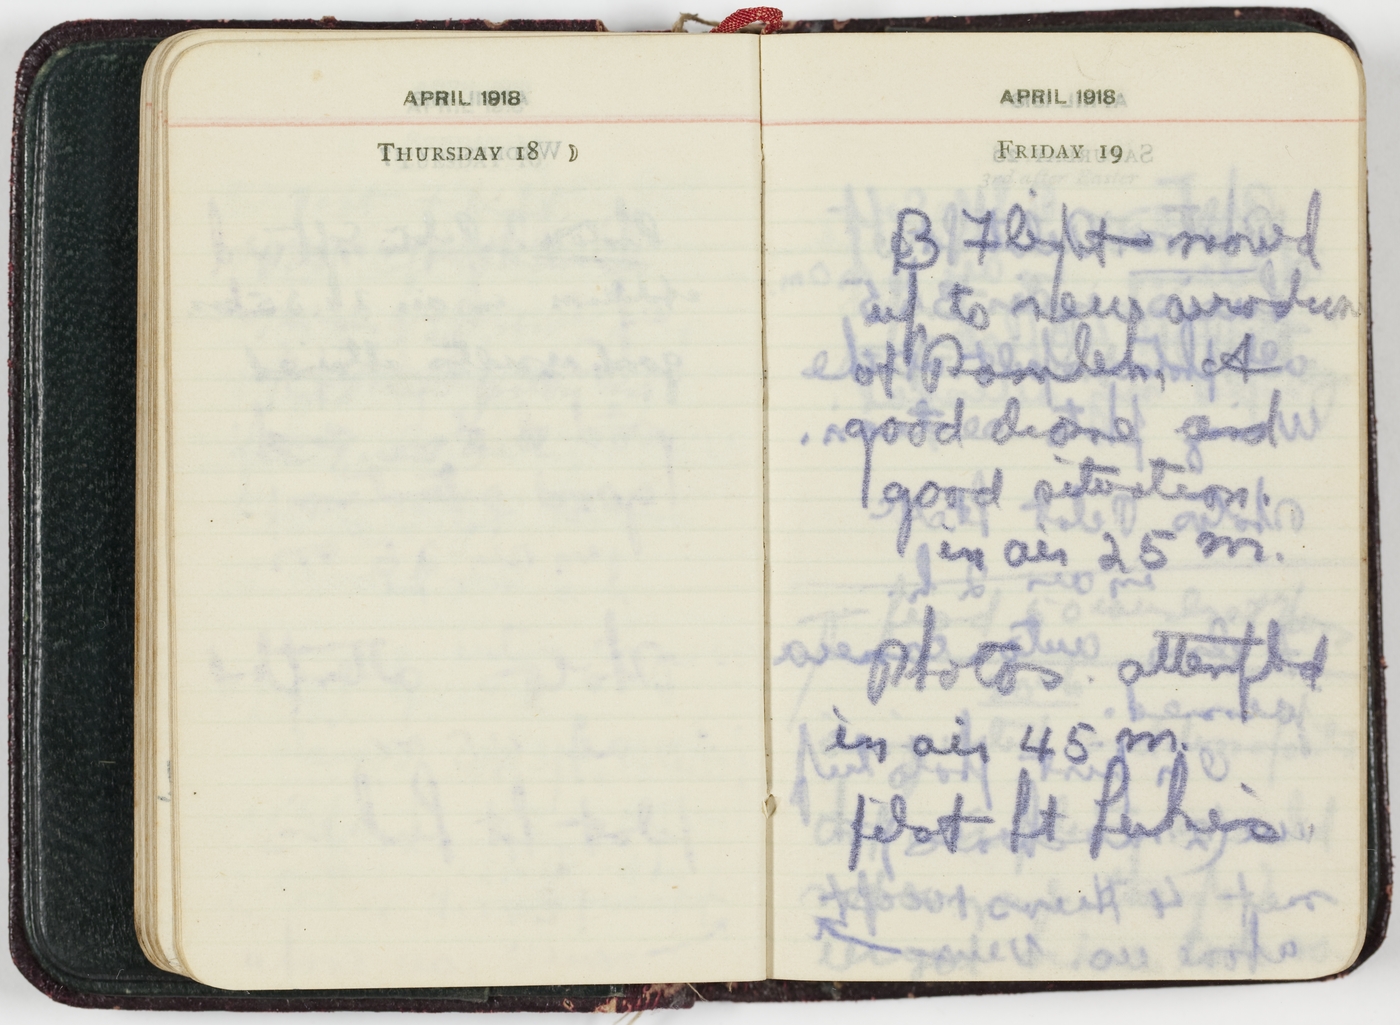 APRIL 1918
THURSDAY 18
APRIL 1918
FRIDAY 19
B Flight moved
up to new aerodrom
of
A
good drome and
good situation.
in air 25 m.
Photos. attempted
in air 45 m.
pilot Lt